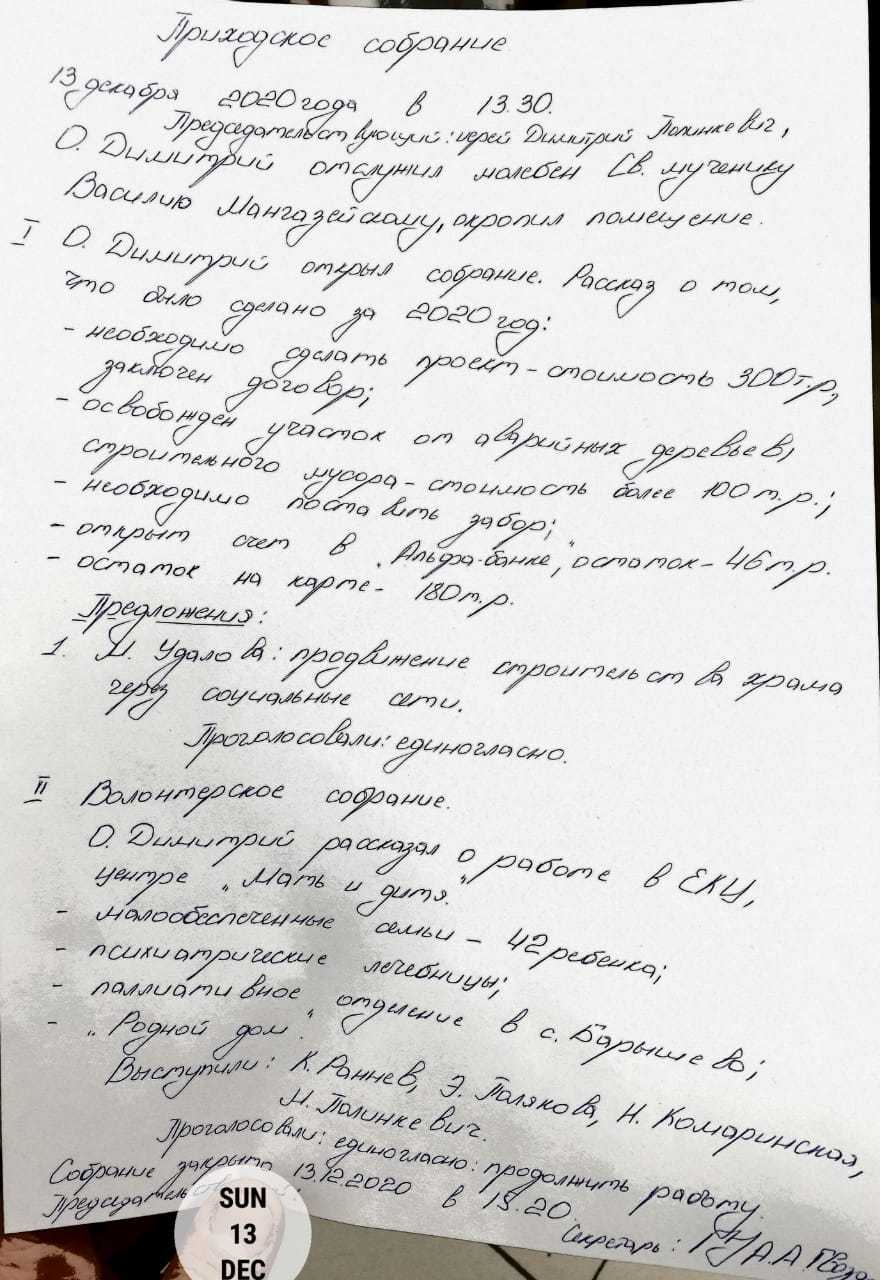 Приходское собрание
13 декабря 2020 года в 13.30.
Председательствующий: иерей Димитрий Полинкевич,
О. Димитрий отслужил молебен Св. мученику
Василию Мангазейскому, окропил помещение.
I О. Димитрий открыл собрание. Рассказ о том,
что было сделано за 2020 год:
- необходимо сделать проект - стоимость 300 т.р,
заключен договор;
- освобожден участок от аварийных деревьев,
строительного мусора - стоимость более 100 т.р.;
- необходимо поставить забор;
- открыт счет в "Альфа-банке", остаток - 46 т.р.
- остаток на карте - 180 т.р.
Предложения:
1. М. Удалова: продвижение строительства храма
через социальные сети.
Проголосовали: единогласно.
II Волонтерское собрание.
О. Димитрий рассказал о работе в ЕКЦ,
центре "Мать и дитя."
- малообеспеченные семьи - 42 ребенка;
- психиатрические лечебницы;
- паллиативное отделение в с. Барышево;
- "Родной дом".
Выступили: К. Раннев, Э. Полякова, Н. Комаринская,
М. Полинкевич.
Проголосовали: единогласно: продолжить работу.
Собрание закрыто 13.12.2020 в 15.20.
Секретарь: А.А.
SUN
13
DEC